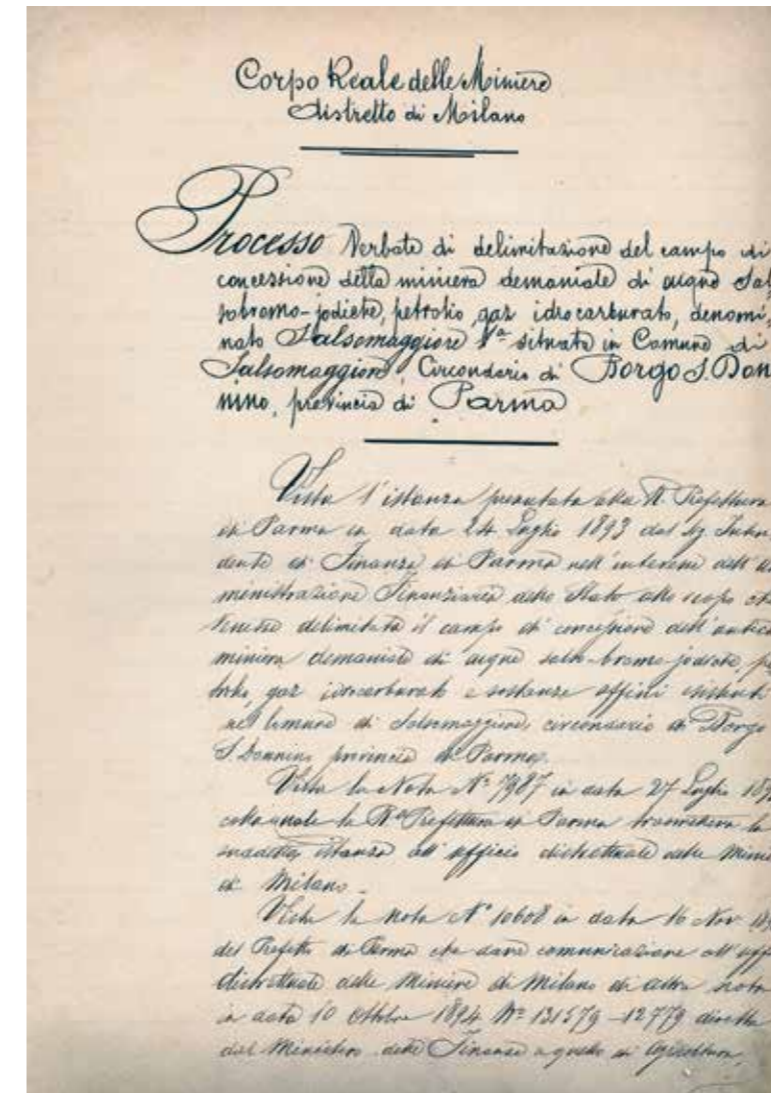 Corpo Reale delle Miniere
distretto di Milano
Processo Verbale di delimitazione del campo di
concessione della miniera demaniale di acque sal
sobromo-jodiche, petrolio, gaz idrocarburato, denomi,
nato Salsomaggiore Iª situato in Comune di
Salsomaggiore, Circondario di Borgo S. Don
nino, provincia di Parma
Vista l'istanza presentata alla R. Prefettura
di Parma in data 24 Luglio 1893 dal Sig. Inten
dente di Finanza di Parma nell'interesse dell'
ministrazione Finanziaria dello Stato allo scopo che
venisse delimitato il campo di concessione dell'antica
miniera demaniale di acque salso-bromo-jodiche, pe
trolio, gaz idrocarburato e sostanze affini esistenti
nel Comune di Salsomaggiore, circondario di Borgo
S. Donnino provincia di Parma.
Vista la Nota Nº 7987 in data 27 Luglio
colla quale la Rª Prefettura di Parma trasmetteva la
suddetta istanza all'ufficio distrettuale delle Mini
di Milano.
Vista la nota Nº 10608 in data 16 Nov
del Prefetto di Parma che dava comunicazione all'uff
distrettuale delle Miniere di Milano di altra nota
in data 10 Ottobre 1894 Nº 131579-12779 diretta
dal Ministero delle Finanze a quello di Agricoltura,